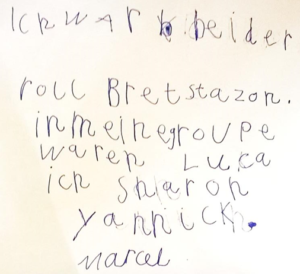 Ich WAr bei der
roll Bretstazon.
in meine groupe
waren Luca
ich Sharon
yannick.
Marcel